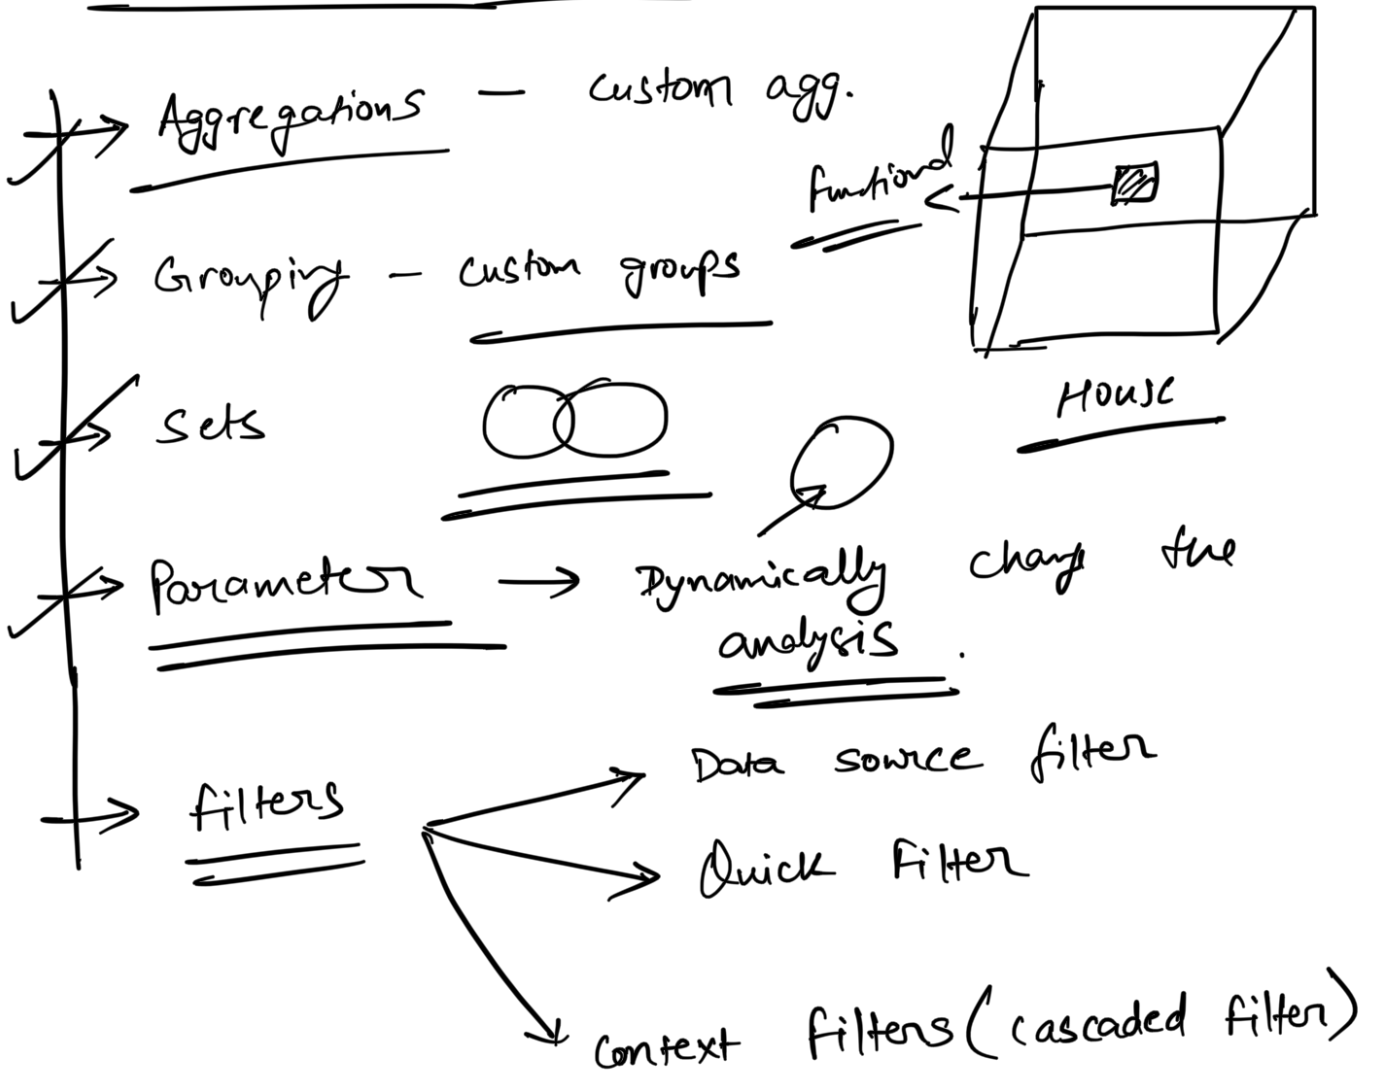 Aggregations — custom agg.
functional
Grouping — custom groups
House
Sets
Parameter → Dynamically change the
analysis.
filters
Data source filter
Quick Filter
Context filters (cascaded filter)